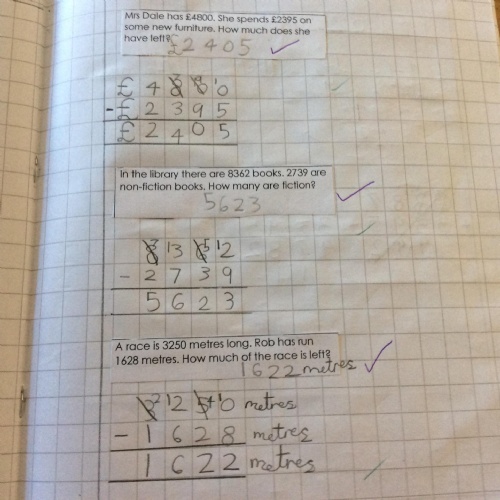 Mrs Dale has £4800. She spends £2395 on
some new furniture. How much does she
have left?
£2405
£ 4 8 0 0
- £ 2 3 9 5
£ 2 4 0 5
In the library there are 8362 books. 2739 are
non-fiction books. How many are fiction?
5623
8 13 6 5 12
- 2 7 3 9
5 6 2 3
A race is 3250 metres long. Rob has run
1628 metres. How much of the race is left?
1622 metres
3 2 12 5 4 10 metres
- 1 6 2 8 metres
1 6 2 2 metres